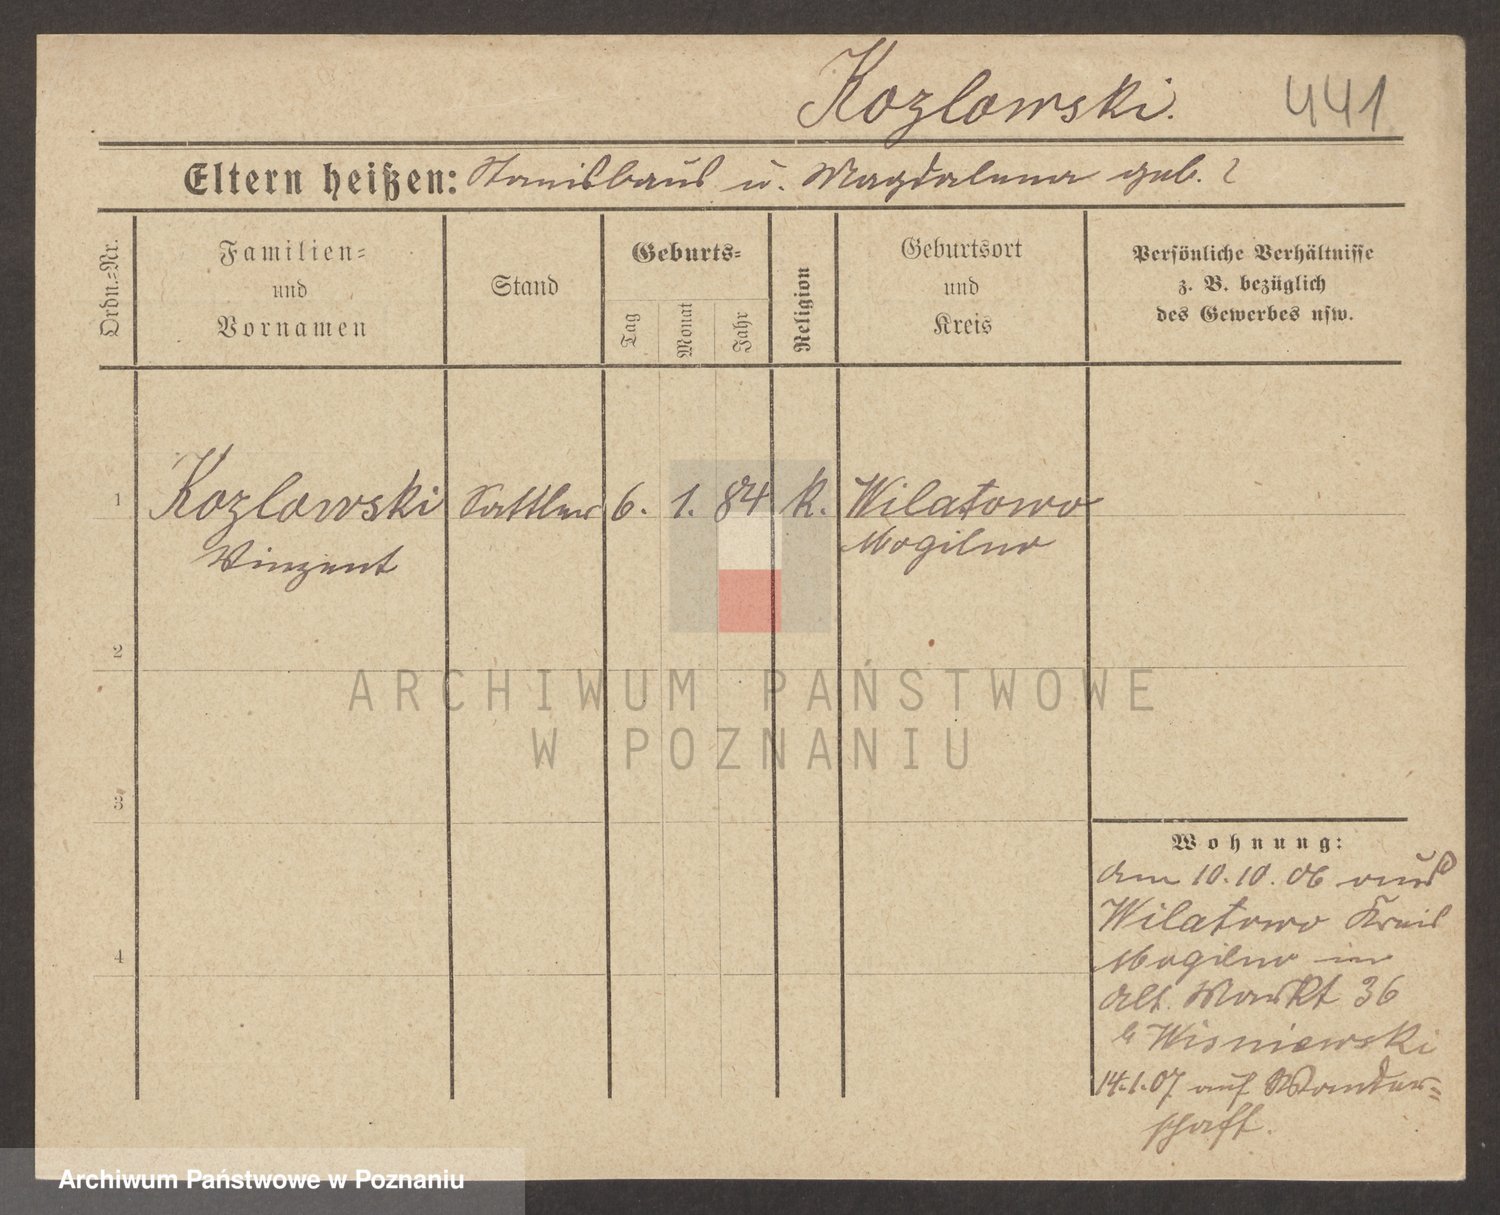 Kozlowski.
441
Eltern heißen: Stanislaus u. Magdalena geb. ?
Ordn.-Nr.
Familien-
und
Vornamen
Stand
Geburts-
Tag
Monat
Jahr
Religion
Geburtsort
und
Kreis
Persönliche Verhältnisse
z. B. bezüglich
des Gewerbes usw.
1 Kozlowski Sattler 6. 1. 84 k. Wilatowo
Vinzent Mogilno
2
3
4
Wohnung:
am 10.10.06 aus
Wilatowo Kreis
Mogilno in
Alt. Markt 36
b Wisniewski
14.1.07 auf Wander-
schaft.
ARCHIWUM PAŃSTWOWE
W POZNANIU
Archiwum Państwowe w Poznaniu